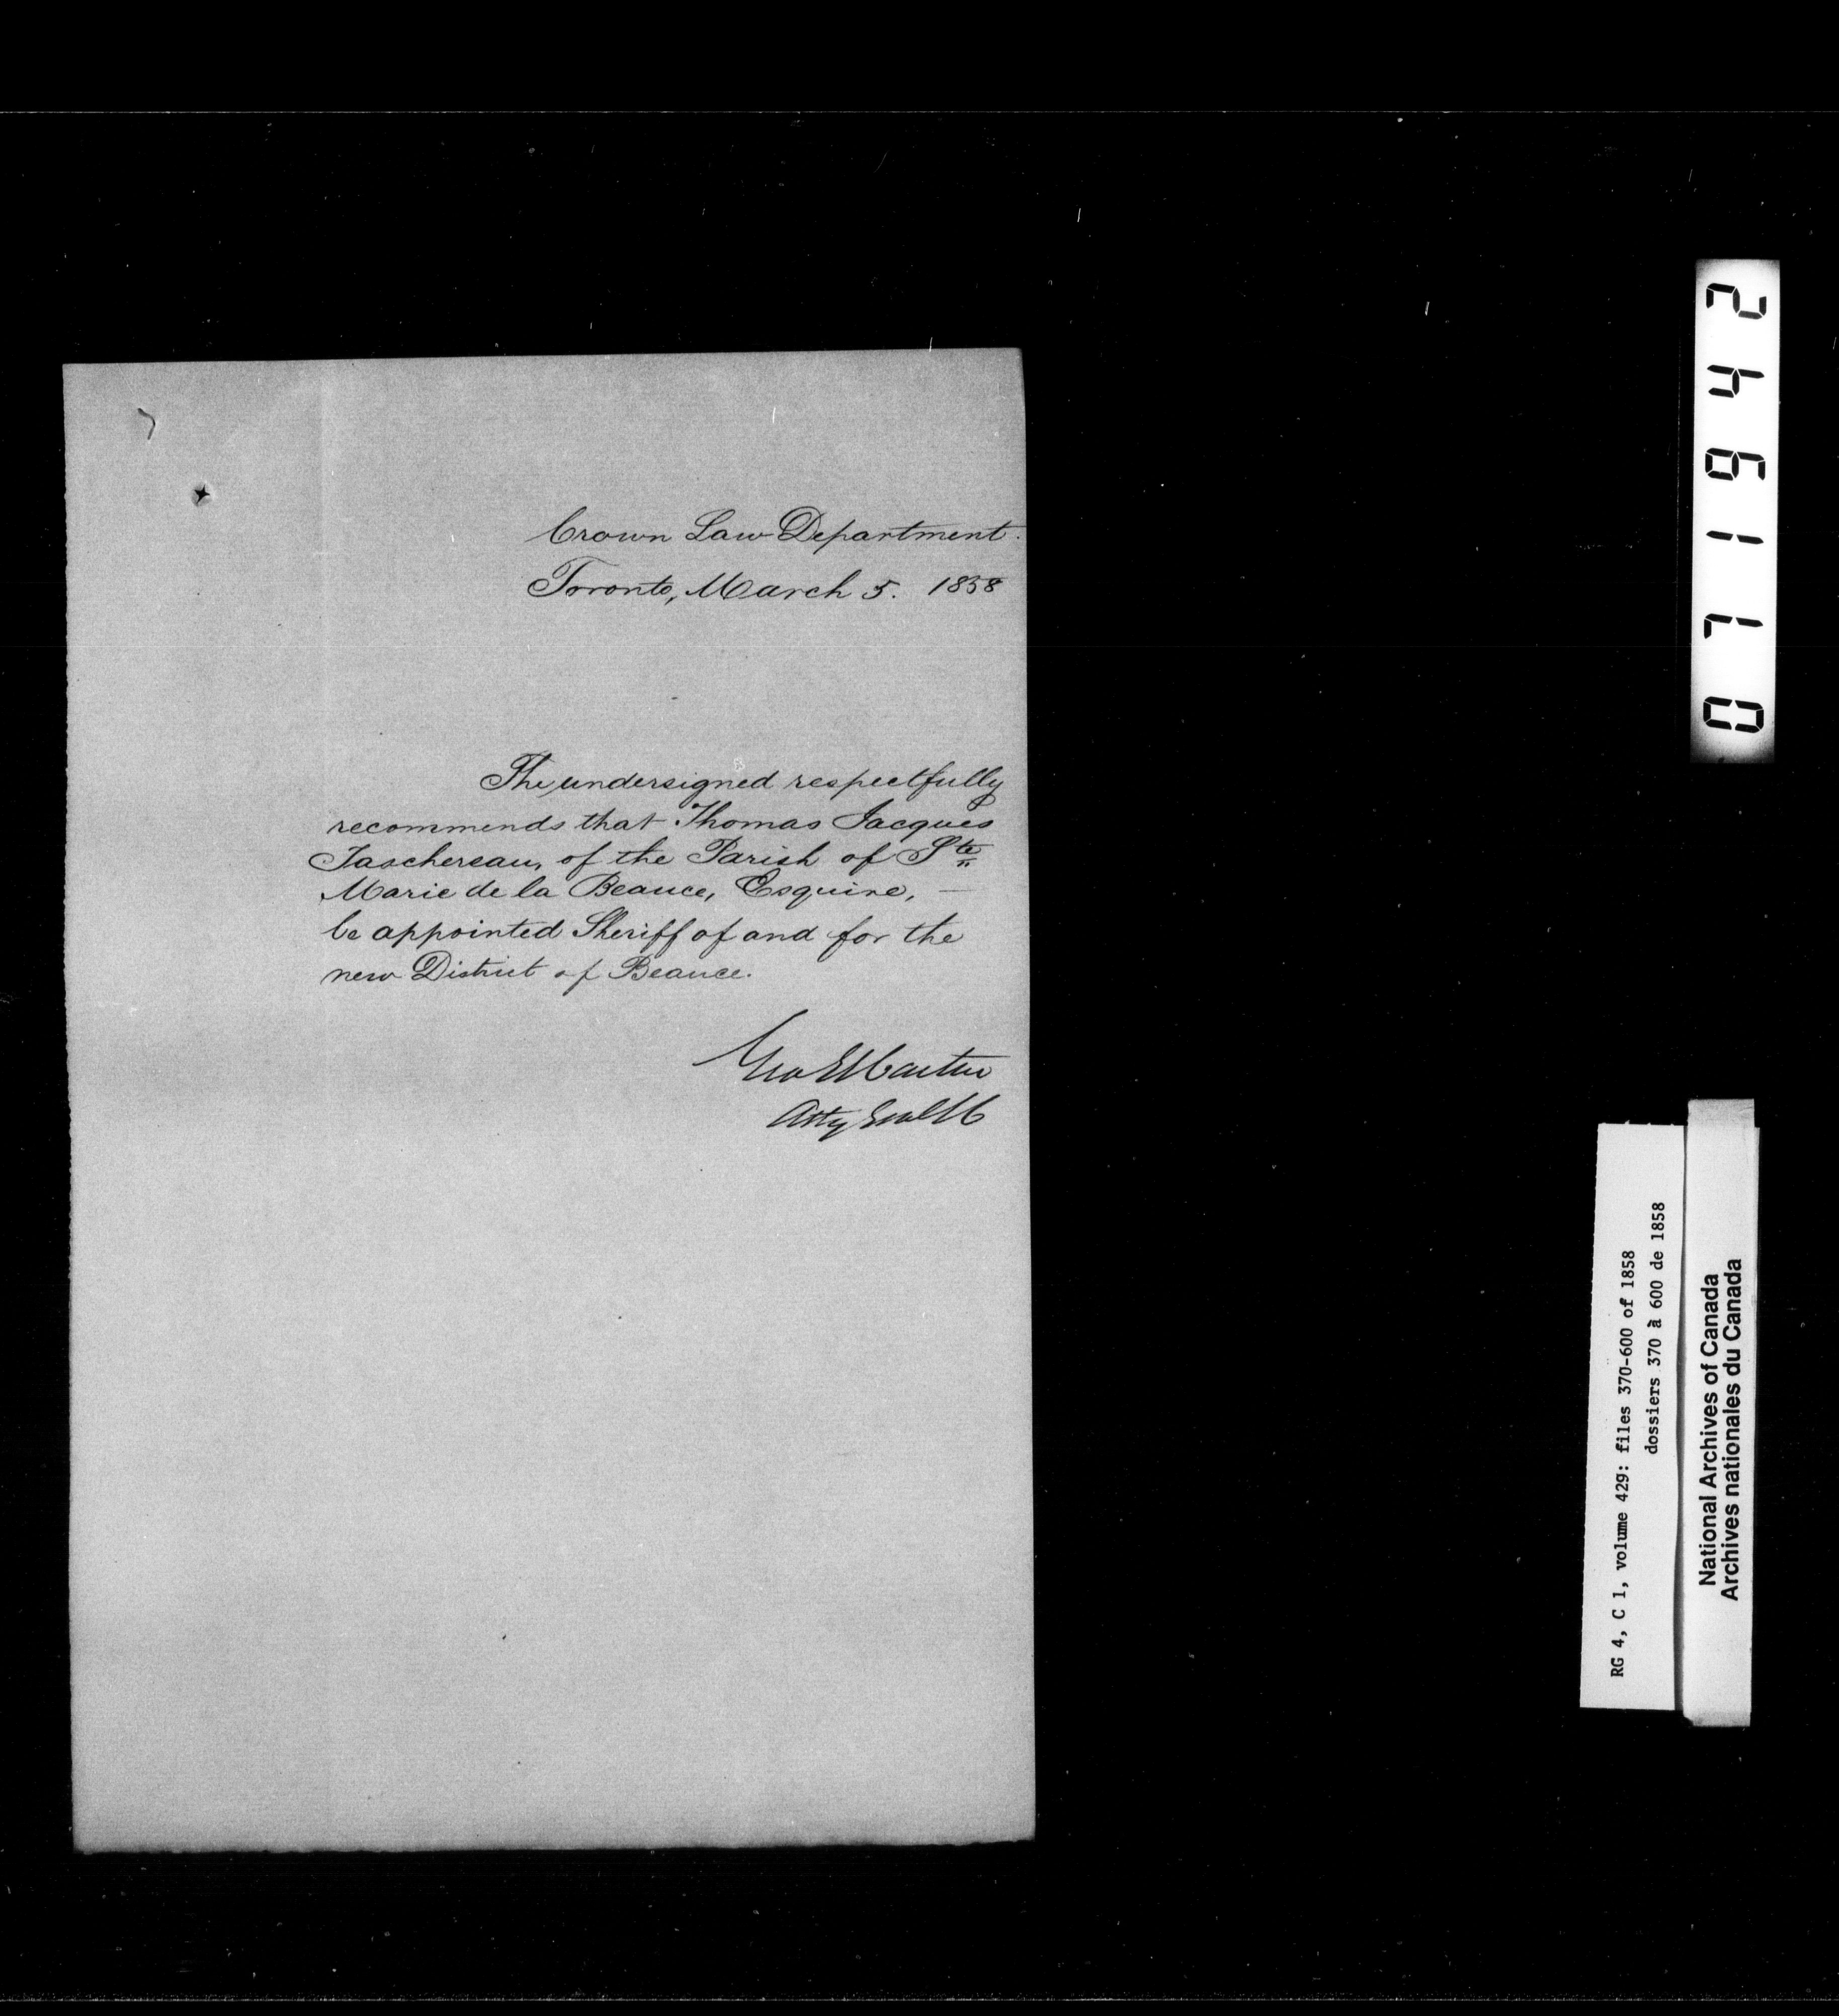 Crown Law Department.
Toronto, March 5. 1858
The undersigned respectfully
recommends that Thomas Jacques
Taschereau, of the Parish of Ste
Marie de la Beauce, Esquire, —
be appointed Sheriff of and for the
new District of Beauce.
Geo E Cartier
Atty Genl LC
071642
RG 4, C 1, volume 429: files 370-600 of 1858
dossiers 370 à 600 de 1858
National Archives of Canada
Archives nationales du Canada